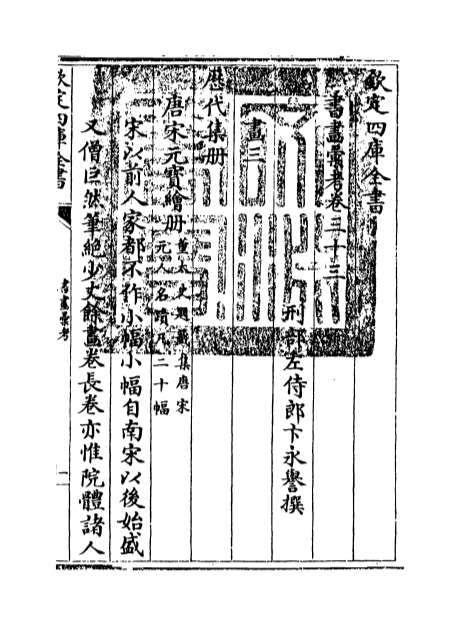 欽定四庫全書
書畫彙考卷三十三
刑部左侍郎卞永譽撰
畫三
歴代集冊
唐宋元寶繪冊
董太史題 集唐宋
元人名蹟凡二十幅
宋以前人家都不作小幅小幅自南宋以後始盛
又僧巨然筆絶少丈餘畫卷長卷亦惟院體諸人
欽定四庫全書
書畫彙考
一